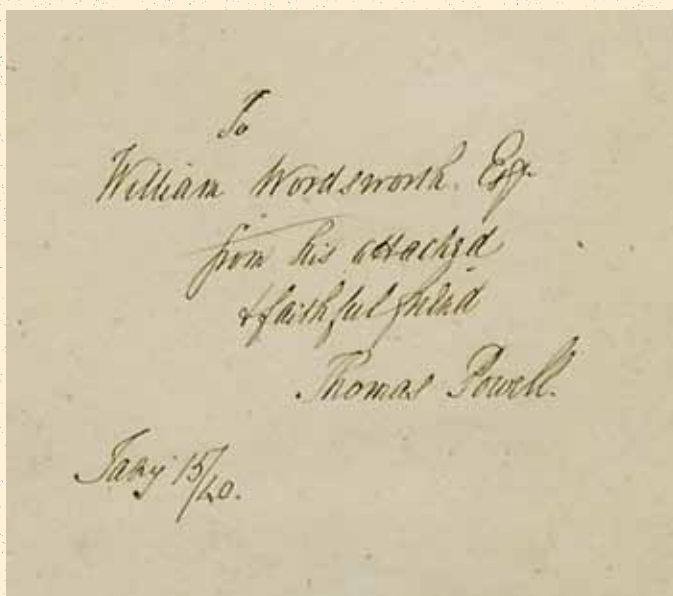 To
William Wordsworth. Esqr
from his attached
& faithful friend
Thomas Powell.
Jany 15/40.